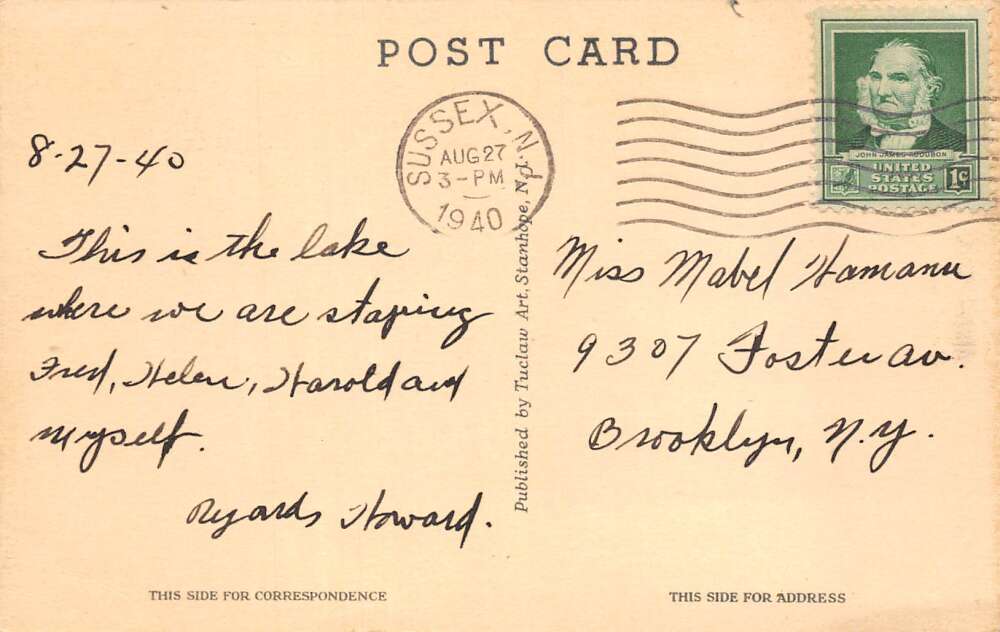 POST CARD
SUSSEX, N.J.
AUG 27
3-PM
1940
JOHN JAMES AUDUBON
UNITED
STATES
POSTAGE
1¢
8-27-40
This is the lake
where we are staying
Fred, Helen, Harold and
myself.
Regards Howard.
Published by Tuclaw Art, Stanhope, N.J.
Miss Mabel Hamann
9307 Foster av.
Brooklyn, N.Y.
THIS SIDE FOR CORRESPONDENCE
THIS SIDE FOR ADDRESS